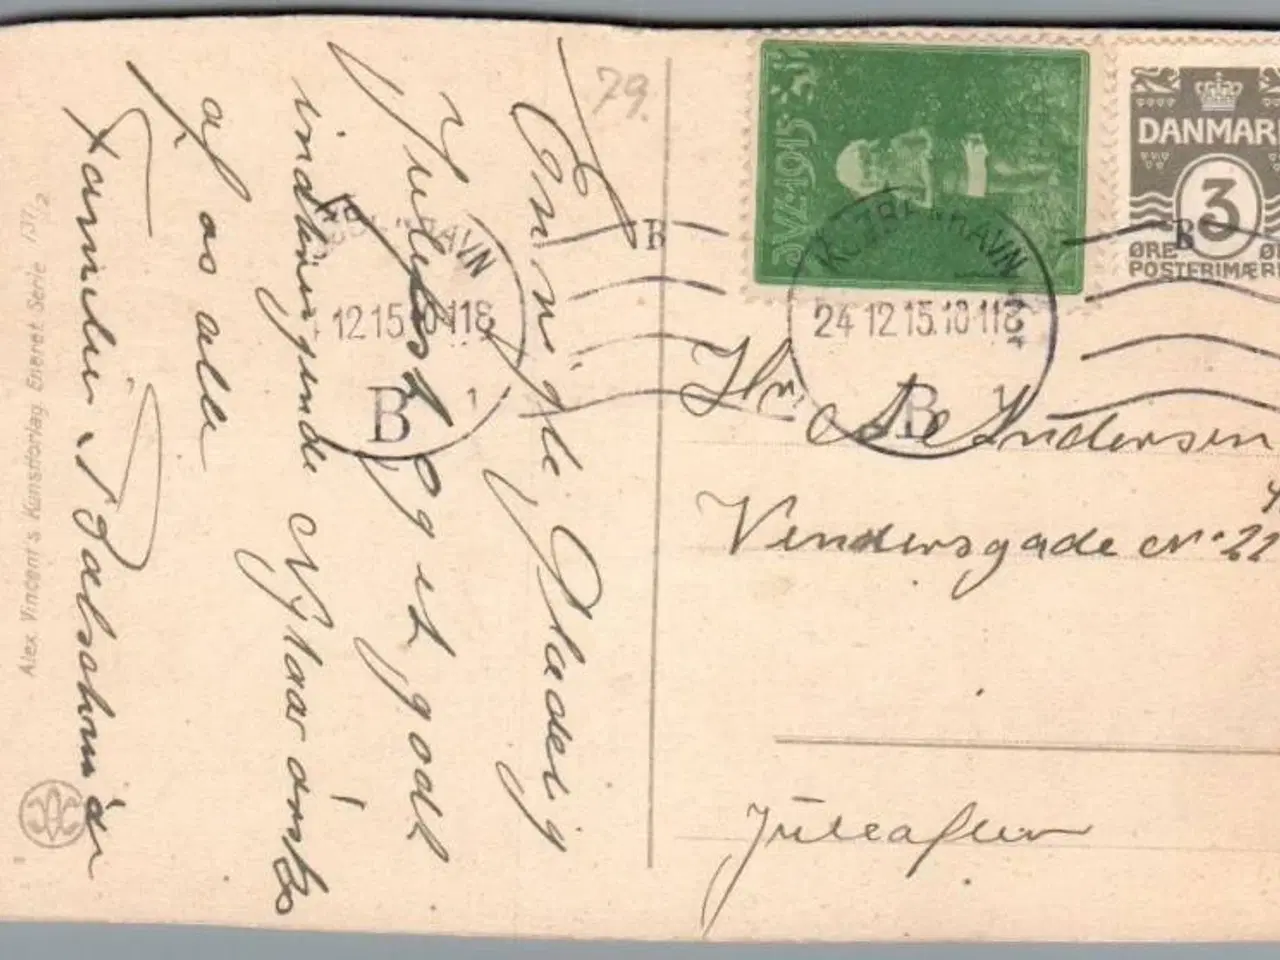 79.
En innigle, Glædelig
Julefest og et godt
indbringende Nytaar ønskes
af os alle
Familien
Alex Vincent's Kunstforlag Eneret Serie 137/2
JUL 1915
DANMARK
3
ØRE
POSTFRIMÆRKE
KJØBENHAVN
24 12.15.10-11F
B
1
KJØBENHAVN
12.15.10-11F
B
1
B
B
Hr. A. Andersen
Vendersgade No. 22
Juleaften